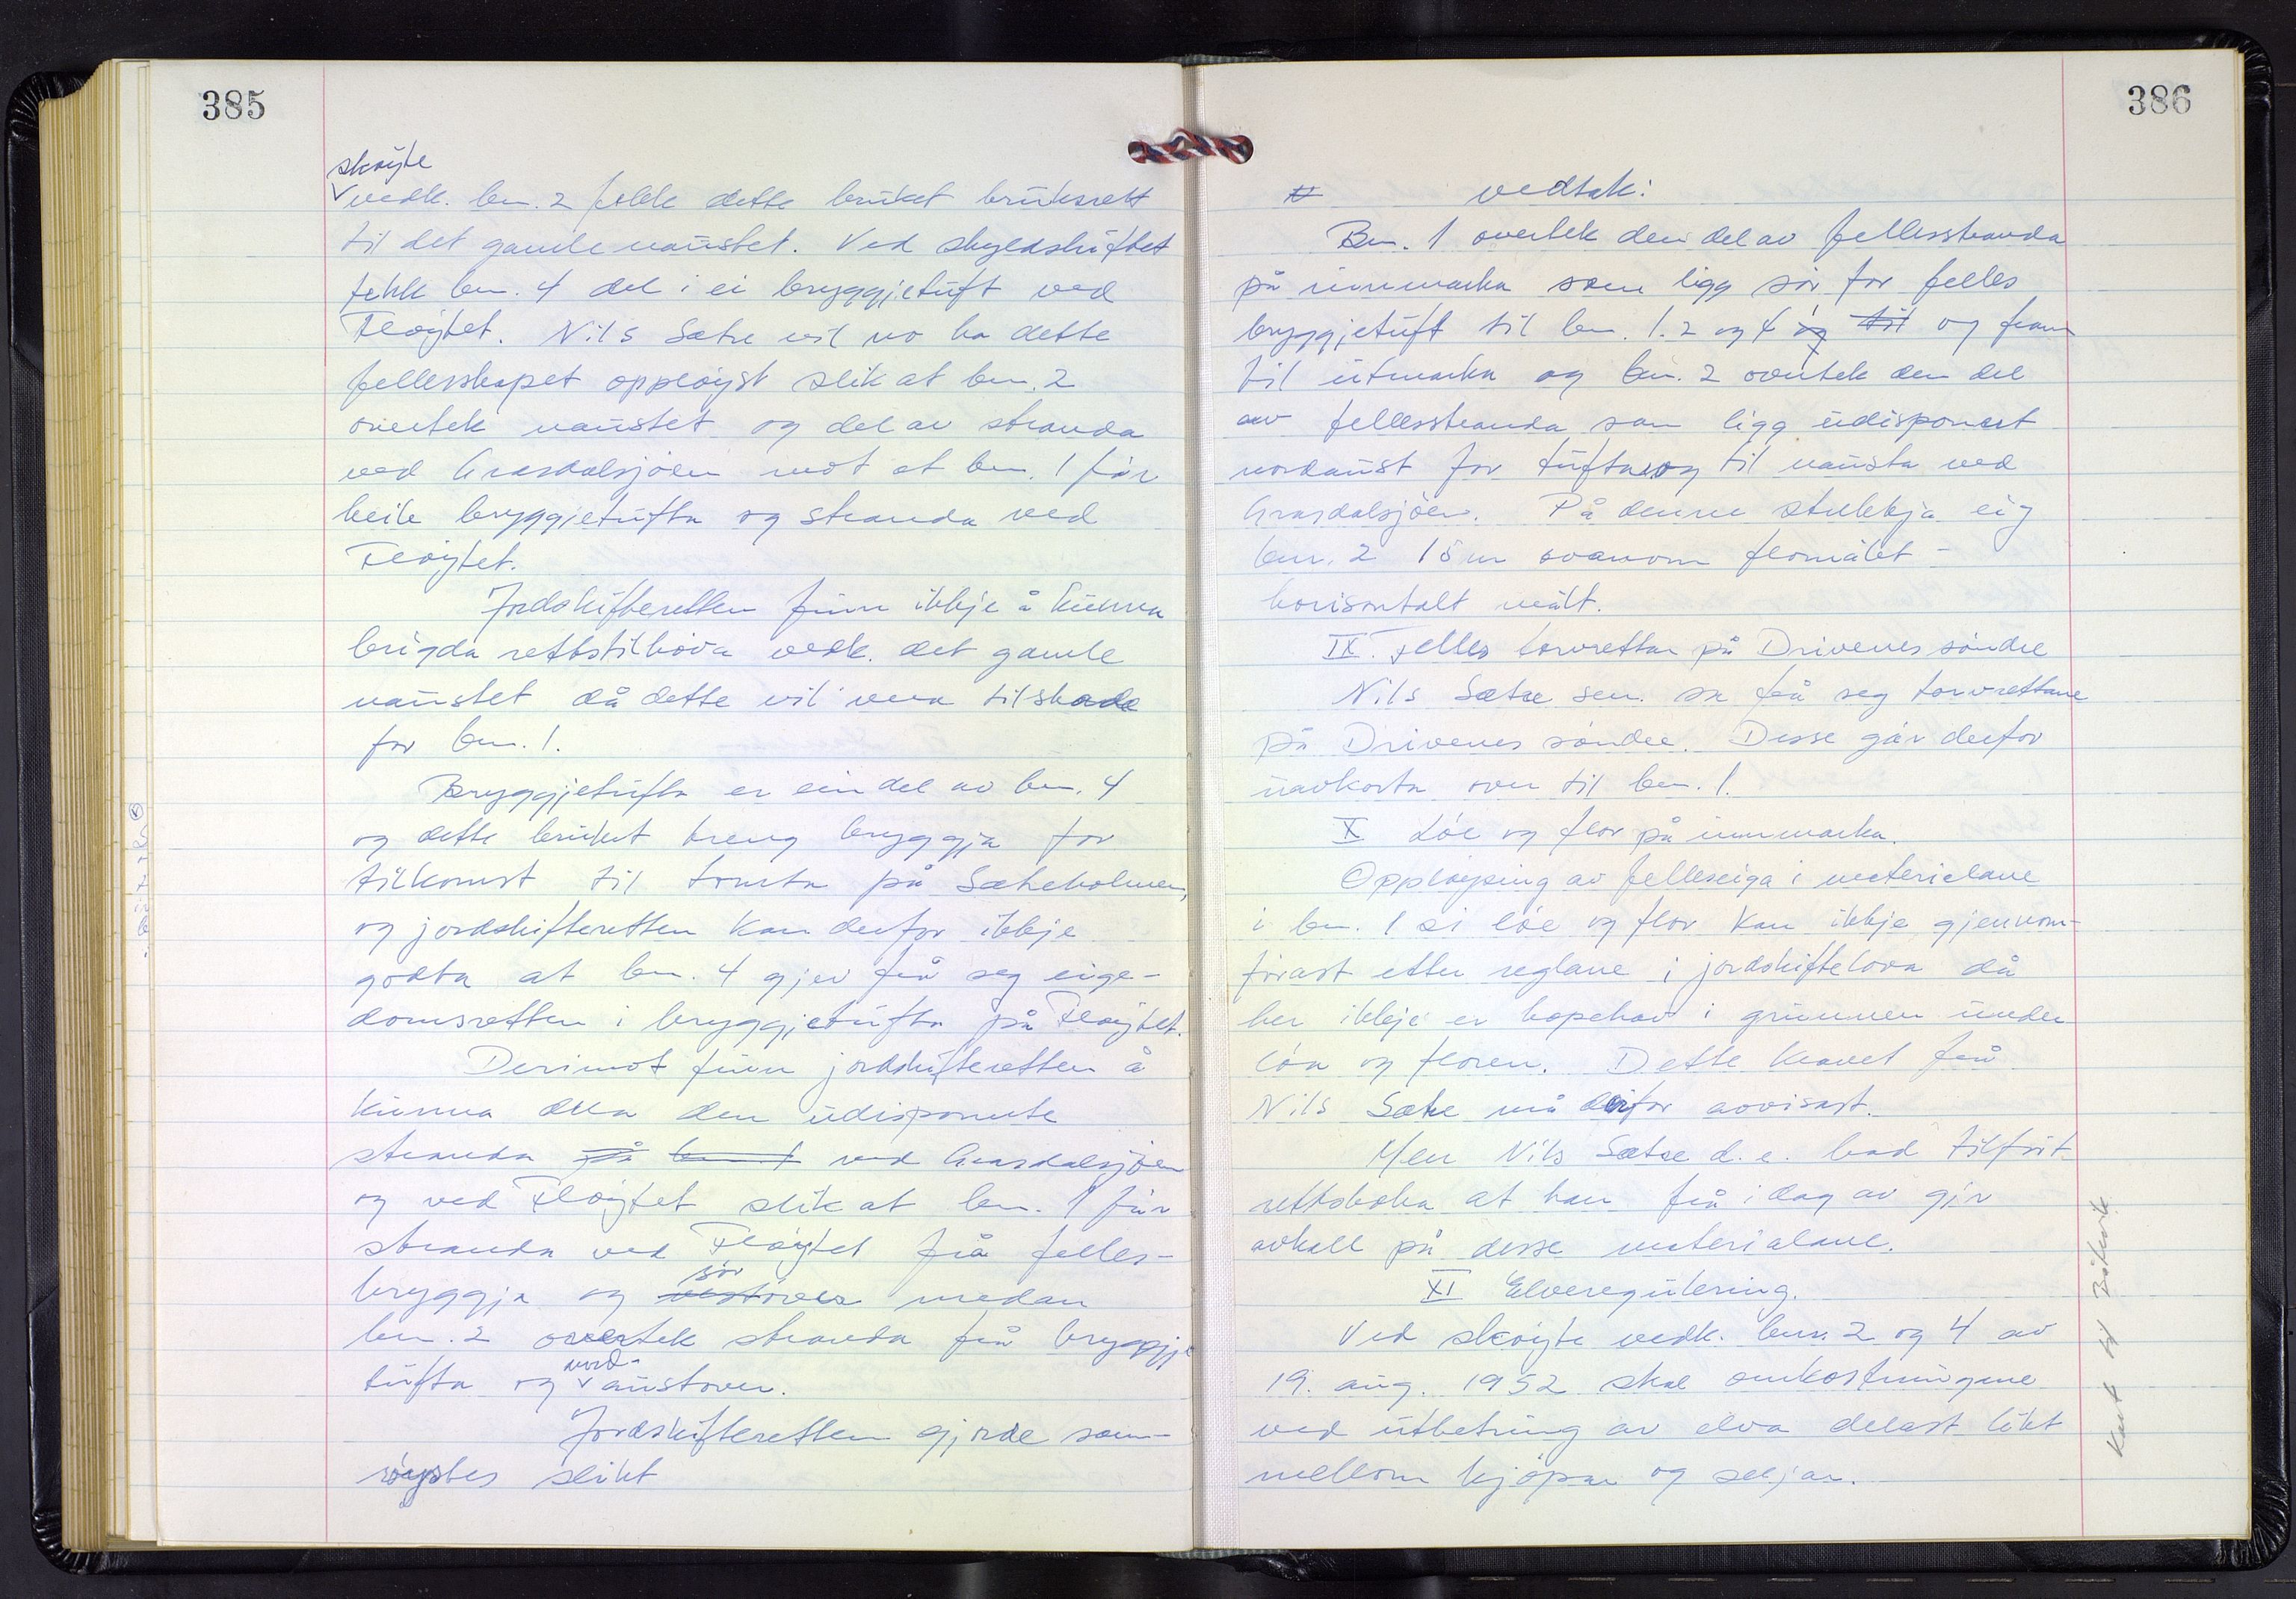 385
skøyte
vedk. bnr. 2 fekk dette bruket bruksrett
til det gamle naustet. Ved skyldskiftet
fekk bnr. 4 del i ei bryggjetuft ved
Fløytet. Nils Sætre vil no ha dette
fellesskapet oppløyst slik at bnr. 2
overtek naustet og del av stranda
ved Grasdalsjøen mot at bnr. 1 får
heile bryggjetufta og stranda ved
Fløytet.
Jordskifteretten finn ikkje å kunna
brigda rettstilhøva vedk. det gamle
naustet då dette vil vera til skade
for bnr. 1.
Bryggjetufta er ein del av bnr. 4
og dette bruket treng bryggja for
tilkomst til tomta på Sætreholmen,
og jordskifteretten kan derfor ikkje
godta at bnr. 4 gjev frå seg eige-
domsretten i bryggjetufta på Fløytet.
Derimot finn jordskifteretten å
kunna dela den udisponerte
stranda på bnr. 1 ved Grasdalsjøen
og ved Fløytet slik at bnr. 1 får
stranda ved Fløytet frå felles-
bryggja og sør vestover medan
bnr. 2 overtek stranda frå bryggje
tufta og nord-austover.
Jordskifteretten gjorde sam-
røystes slikt
386
vedtak:
Bnr. 1 overtek den del av fellesstranda
på innmarka som ligg sør for felles
bryggjetuft til bnr. 1. 2 og 4 og til og fram
til utmarka og bnr. 2 overtek den del
av fellesstranda som ligg udisponert
nordaust for tufta og til nausta ved
Grasdalsjøen. På denne strekkja eig
bnr. 2 15 m ovanom flomålet -
horisontalt målt.
IX. Felles torvrettar på Drivenes søndre
Nils Sætre sen. sa frå seg torvrettane
på Drivenes søndre. Desse går derfor
uavkorta over til bnr. 1.
X Løe og flor på innmarka.
Oppløysing av felleseiga i materialane
i bnr. 1 si løe og flor kan ikkje gjennom-
førast etter reglane i jordskiftelova då
her ikkje er hopehav i grunnen under
løa og floren. Dette kravet frå
Nils Sætre må derfor avvisast.
Men Nils Sætre d.e. bad tilført
rettsboka at han frå i dag av gir
avkall på desse materialane.
XI Elveregulering.
Ved skøyte vedk. bnr. 2 og 4 av
19. aug. 1952 skal omkostningane
ved utbetring av elva delast likt
mellom kjøpar og seljar.
Kart til